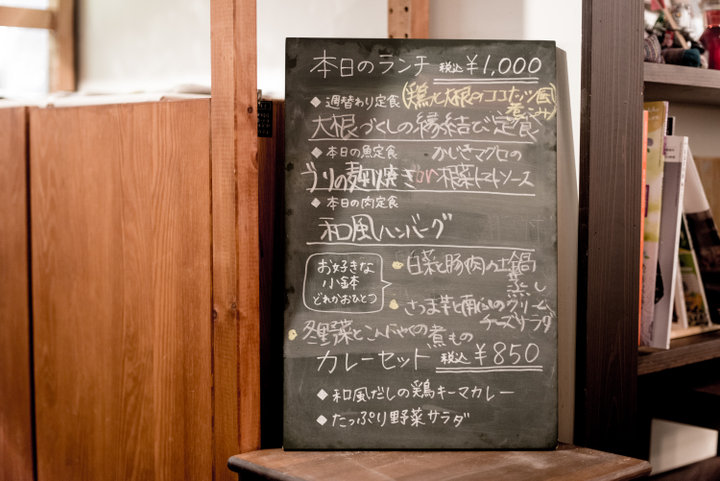 本日のランチ 税込 ¥1,000
◆ 週替わり定食 (鶏と大根のココナッツ風
煮
大根づくしの縁結び定食
◆ 本日の魚定食 かじきマグロの
ブリの麹焼き 根菜トマトソース
◆ 本日の肉定食
和風ハンバーグ
お好きな
小鉢
どれかおひとつ
白菜と豚肉の土鍋
蒸し
さつま芋と南瓜のクリーム
チーズサラダ
冬野菜とこんにゃくの煮もの
カレーセット 税込 ¥850
◆ 和風だしの鶏キーマカレー
◆ たっぷり野菜サラダ